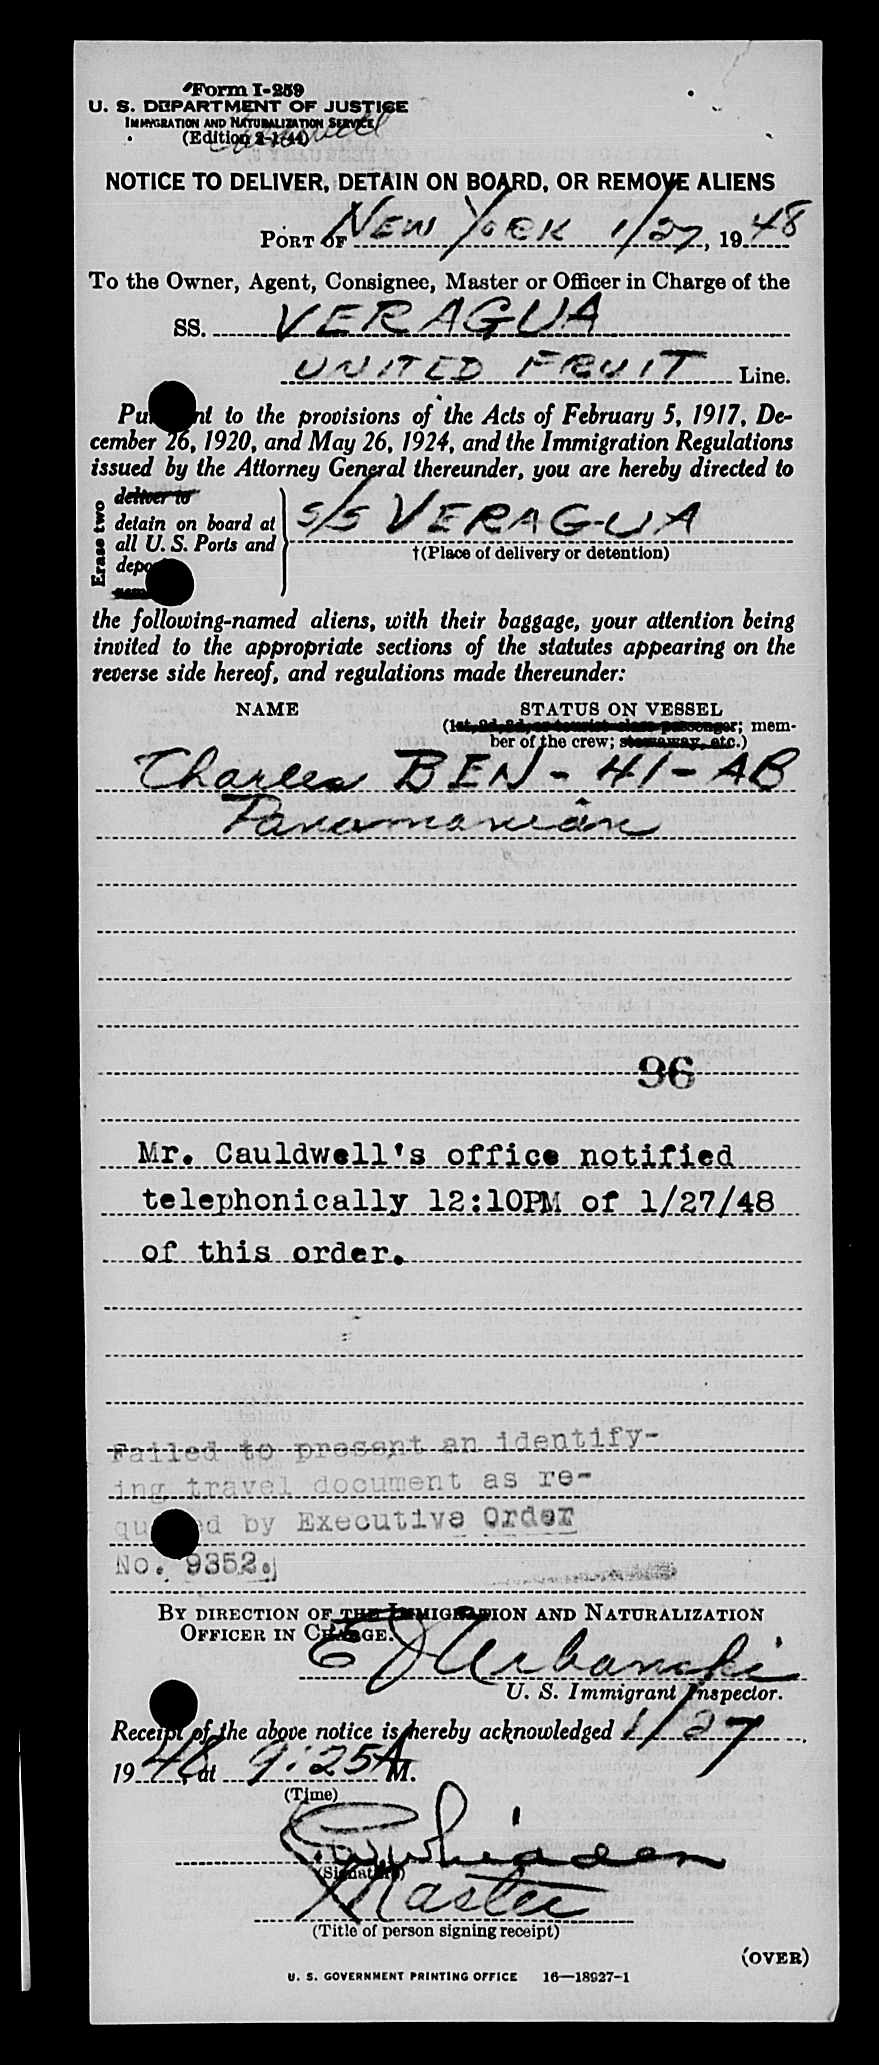 Form I-259
U. S. DEPARTMENT OF JUSTICE
IMMIGRATION AND NATURALIZATION SERVICE
(Edition 2-1-44)
NOTICE TO DELIVER, DETAIN ON BOARD, OR REMOVE ALIENS
PORT OF NEW YORK 1/27, 1948
To the Owner, Agent, Consignee, Master or Officer in Charge of the
SS. VERAGUA
UNITED FRUIT Line.
Pursuant to the provisions of the Acts of February 5, 1917, De-
cember 26, 1920, and May 26, 1924, and the Immigration Regulations
issued by the Attorney General thereunder, you are hereby directed to
Erase two
deliver to
detain on board at
all U. S. Ports and
depo
S/S VERAGUA
†(Place of delivery or detention)
the following-named aliens, with their baggage, your attention being
invited to the appropriate sections of the statutes appearing on the
reverse side hereof, and regulations made thereunder:
NAME STATUS ON VESSEL
(1st, 2d, 3d, or tourist class passenger; mem-
ber of the crew; stowaway, etc.)
Charles BEN - 41 - AB
Panamanian
96
Mr. Cauldwell's office notified
telephonically 12:10PM of 1/27/48
of this order.
Failed to present an identify-
ing travel document as re-
qu d by Executive Order
No. 9352.
BY DIRECTION OF THE IMMIGRATION AND NATURALIZATION
OFFICER IN CHARGE.
E J Urbanski
U. S. Immigrant Inspector.
Receipt of the above notice is hereby acknowledged 1/27
1948, at 9:25 A M.
(Time)
(Signature)
Master
(Title of person signing receipt)
(OVER)
U. S. GOVERNMENT PRINTING OFFICE 16—18927-1